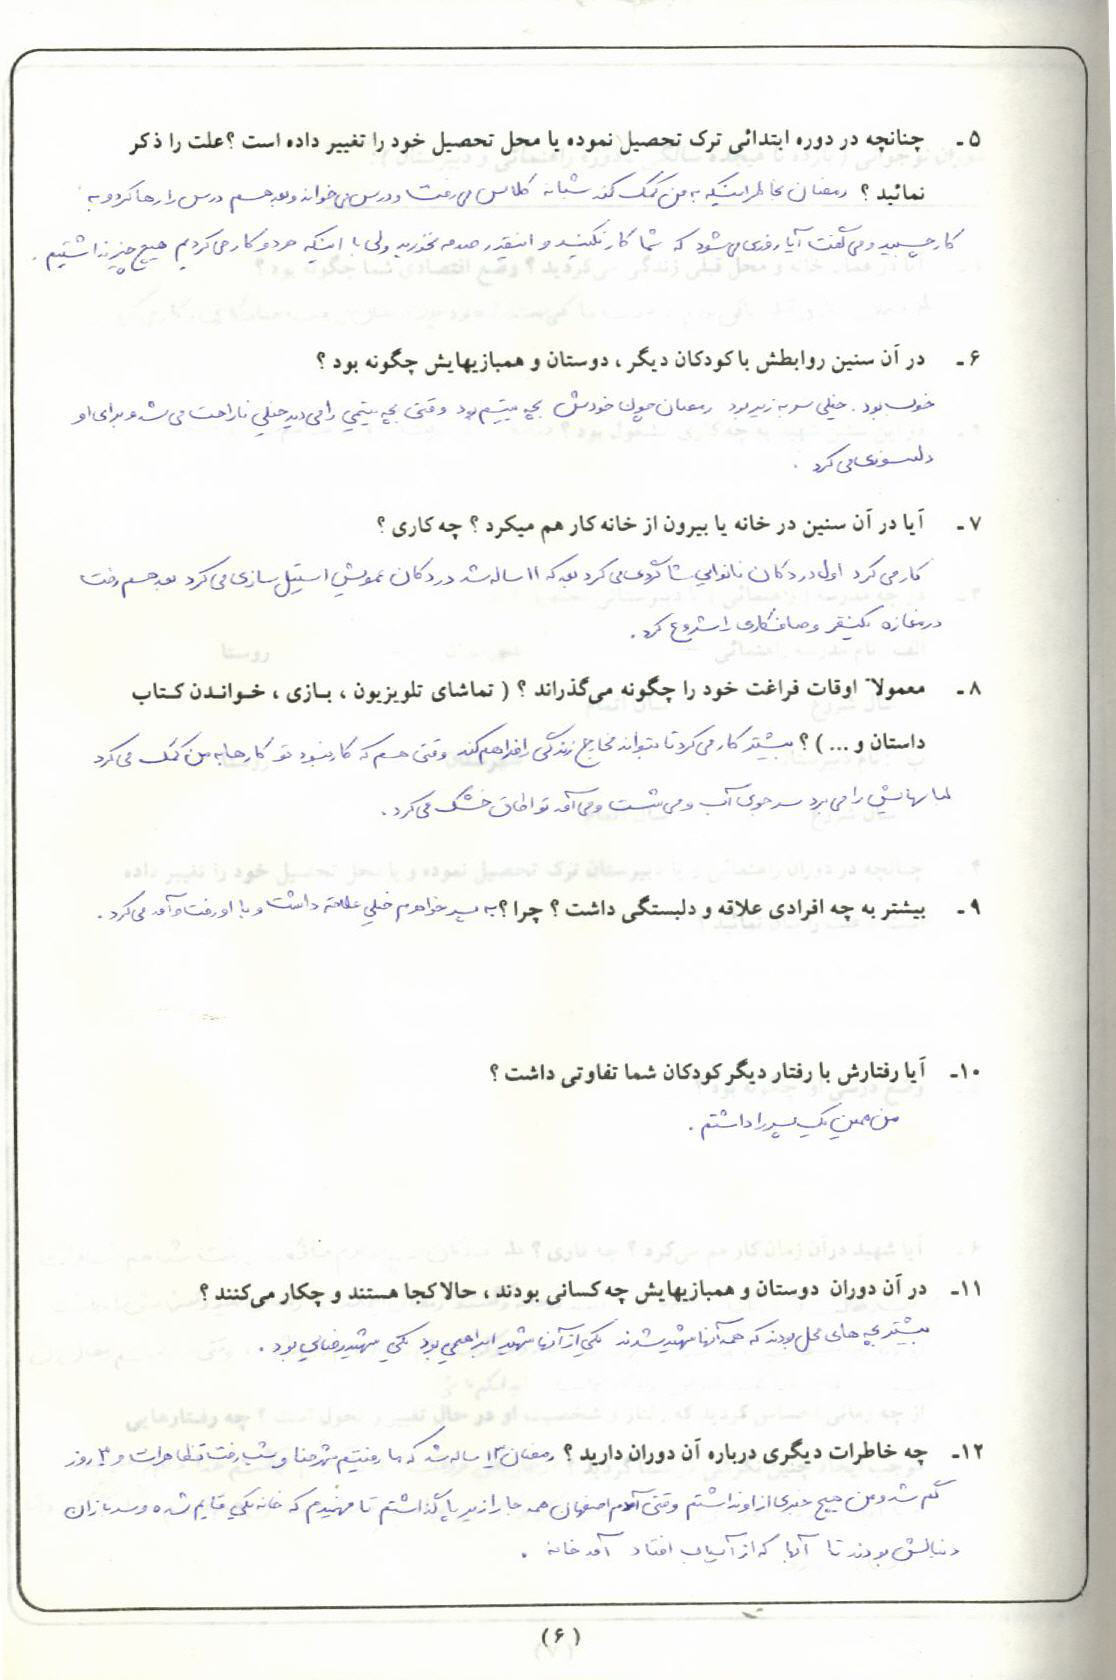 ۵ ـ چنانچه در دوره ابتدائی ترک تحصیل نموده یا محل تحصیل خود را تغییر داده است ؟ علت را ذکر
نمائید ؟ رمضان بخاطر اینکه به من کمک کند شبانه کلاس می رفت و درس می خواند و بعد هم درس را رها کرد و به
کار چسبید و می گفت آیا روزی می شود که شما کار نکنید و اینقدر صدمه نخورید ولی با اینکه هر دو کار می کردیم هیچ چیز نداشتیم .
۶ ـ در آن سنین روابطش با کودکان دیگر ، دوستان و همبازیهایش چگونه بود ؟
خوب بود . خیلی سر به زیر بود رمضان چون خودش بچه یتیم بود وقتی بچه یتیمی را می دید خیلی ناراحت می شد و برای او
دلسوزی می کرد .
۷ ـ آیا در آن سنین در خانه یا بیرون از خانه کار هم میکرد ؟ چه کاری ؟
کار می کرد اول در دکان نانوایی شاگردی می کرد بعد که ۱۱ ساله شد در دکان عمویش استیل سازی می کرد بعد هم رفت
در مغازه یکنفر و صافکاری را شروع کرد .
۸ ـ معمولاً اوقات فراغت خود را چگونه می‌گذراند ؟ ( تماشای تلویزیون ، بازی ، خواندن کتاب
داستان و ... ) ؟ بیشتر کار می کرد تا بتواند مخارج زندگی را فراهم کند وقتی هم که کار نبود تو کارها به من کمک می کرد
لباسهایش را می برد سر جوی آب و می شست و می آمد تو اطاق خشک می کرد .
۹ ـ بیشتر به چه افرادی علاقه و دلبستگی داشت ؟ چرا ؟ به پسر خواهرم خیلی علاقه داشت و با او رفت و آمد می کرد .
۱۰ـ آیا رفتارش با رفتار دیگر کودکان شما تفاوتی داشت ؟
من همین یک پسر را داشتم .
۱۱ـ در آن دوران دوستان و همبازیهایش چه کسانی بودند ، حالا کجا هستند و چکار می‌کنند ؟
بیشتر بچه های محل بودند که همه آنها شهید شدند یکی از آنها شهید ابراهیمی بود یکی شهید رضایی بود .
۱۲ـ چه خاطرات دیگری درباره آن دوران دارید ؟ رمضان ۱۳ ساله شد که ما رفتیم شهرضا و شب رفت تظاهرات و ۳ روز
گم شد و من هیچ خبری از او نداشتم وقتی آمدم اصفهان همه جا را زیر پا گذاشتم تا فهمیدم که خانه یکی قایم شده و سربازان
دنبالش بودند تا آنها که از آسیاب افتاد آمد خانه .
( ۶ )